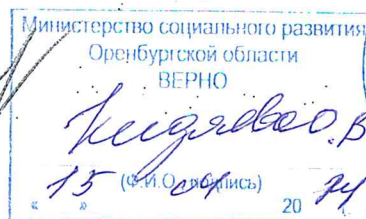 Министерство социального развития
Оренбургской области
ВЕРНО
(Ф.И.О., подпись)
« 15 » 20